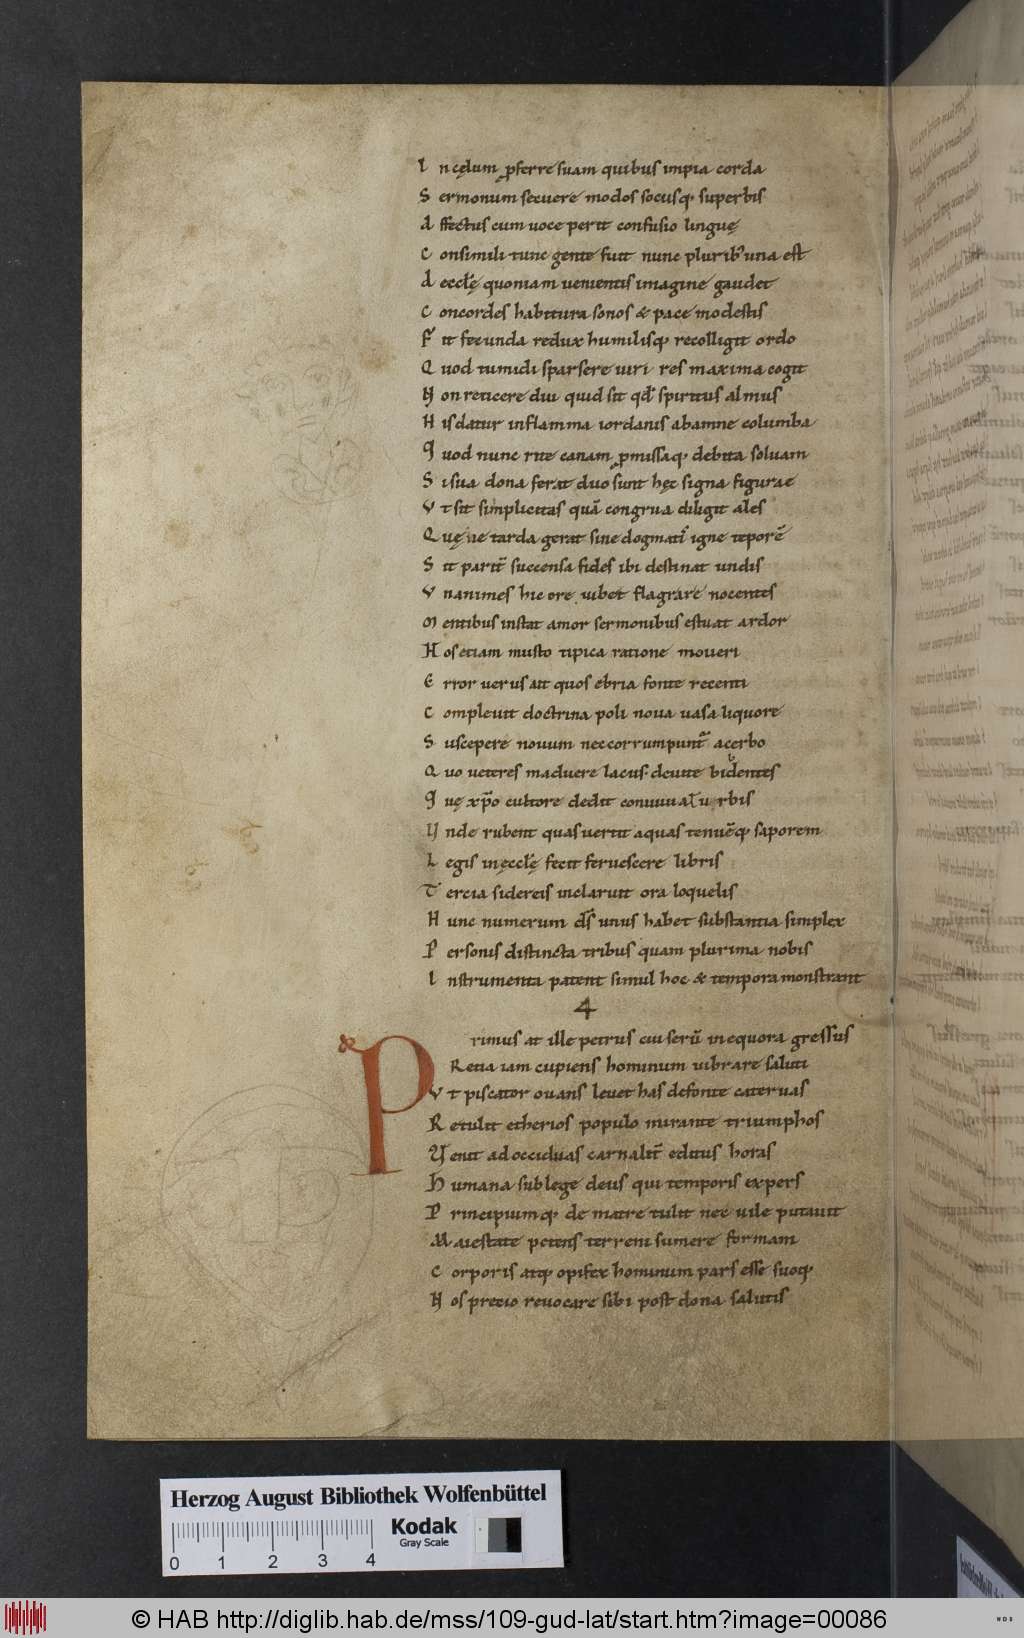 I n cęlum ꝓferre suam quibus impia corda
S ermonum secuere modos sociisq; superbis
A ffectus cum uoce perit confusio linguę
C onsimili tunc gente fuit nunc plurib; una est
A ecclę quoniam uenientis imagine gaudet
C oncordes habitura sonos & pace modestis
F it fecunda redux humilisq; recolligit ordo
Q uod tumidi sparsere uiri res maxima cogit
N on reticere diu quid sit qđ spiritus almus
H is datur in flamma iordanis ab amne columba
Q uod nunc rite canam ꝓmissaq; debita soluam
S i sua dona ferat duo sunt hęc signa figurae
V t sit simplicitas quā congrua diligit ales
Q uę ne tarda gerat sine dogmatis igne teporē
S it parit̄ succensa fides ibi destinat undis
V nanimes hic ore iubet flagrare nocentes
M entibus instat amor sermonibus estuat ardor
H os etiam musto tipica ratione moueri
E rror uerus ait quos ebria fonte recenti
C ompleuit doctrina poli noua uasa liquore
S uscepere nouum nec corrumpunt̄ acerbo
Q uo ueteres maduere lacus. de uite bidentes
Q uę xp̄o cultore dedit conuiuia uerbis
V nde rubent quas uertit aquas tenuēq; saporem
L egis in ęcclę fecit feruescere libris
T ercia sidereis inclaruit ora loquelis
H unc numerum ds̄ unus habet substantia simplex
P ersonis distincta tribus quam plurima nobis
I nstrumenta patent simul hoc & tempora monstrant
4
P rimus at ille petrus cui serū in equora gressus
R etia iam cupiens hominum uibrare saluti
V t piscator ouans leuet has de fonte cateruas
R etulit etherios populo mirante triumphos
V enit ad occiduas carnalit̄ editus horas
H umana sub lege deus qui temporis expers
P rincipiumq; de matre tulit nec uile putauit
M aiestate potens terreni sumere formam
C orporis atq; opifex hominum pars esse suoq;
N os precio reuocare sibi post dona salutis
Herzog August Bibliothek Wolfenbüttel
Kodak
Gray Scale
0 1 2 3 4
© HAB http://diglib.hab.de/mss/109-gud-lat/start.htm?image=00086